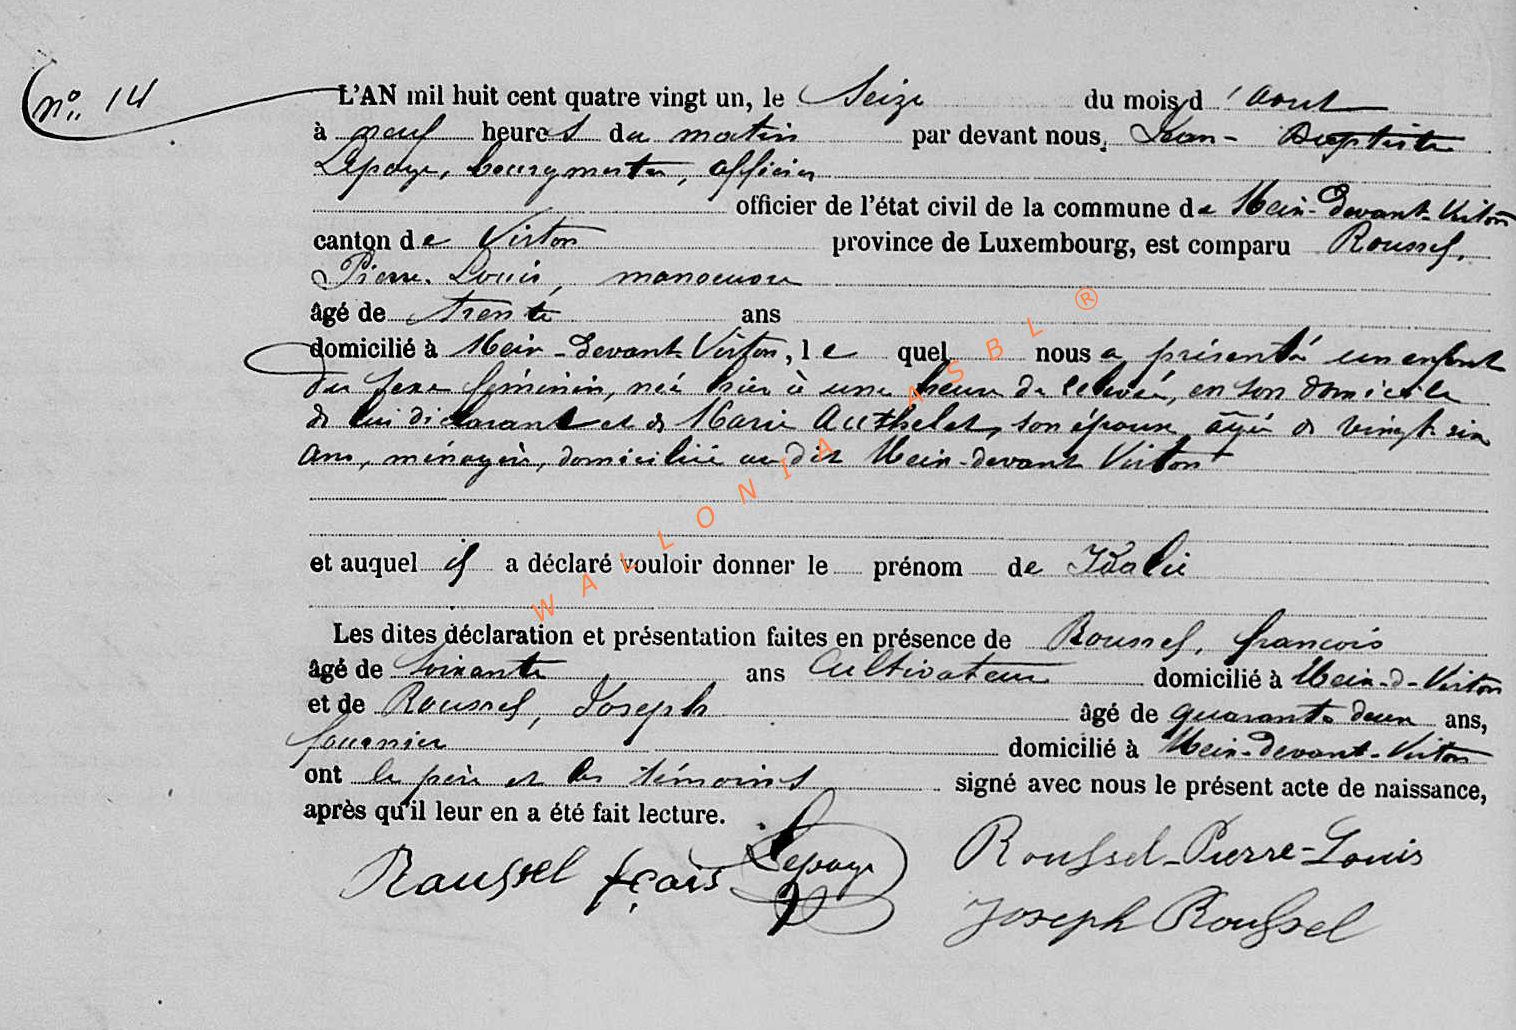 nº 14
L'AN mil huit cent quatre vingt un, le Seize du mois d'aout
à neuf heures du matin par devant nous, Jean-Baptiste
Lepage, bourgmestre, officier
officier de l'état civil de la commune de Meix-devant-Virton
canton de Virton province de Luxembourg, est comparu Roussel,
Pierre-Louis, manoeuvre
âgé de trente ans
domicilié à Meix-devant-Virton, le quel nous a présenté un enfant
du sexe féminin, née hier à une heure de relevée, en son domicile
de lui déclarant et de Marie Authelet, son épouse, âgée de vingt six
ans, ménagère, domiciliée au dit Meix-devant Virton
et auquel il a déclaré vouloir donner le prénom de Idalie
Les dites déclaration et présentation faites en présence de Roussel, francois
âgé de soixante ans Cultivateur domicilié à Meix-d-Virton
et de Roussel, Joseph âgé de quarante deux ans,
domicilié à Meix-devant-Virton
ont le père et les témoins signé avec nous le présent acte de naissance,
après qu'il leur en a été fait lecture.
Roussel fçois Lepage Roussel-Pierre-Louis
Joseph Roussel
WALLONIA ASBL ®